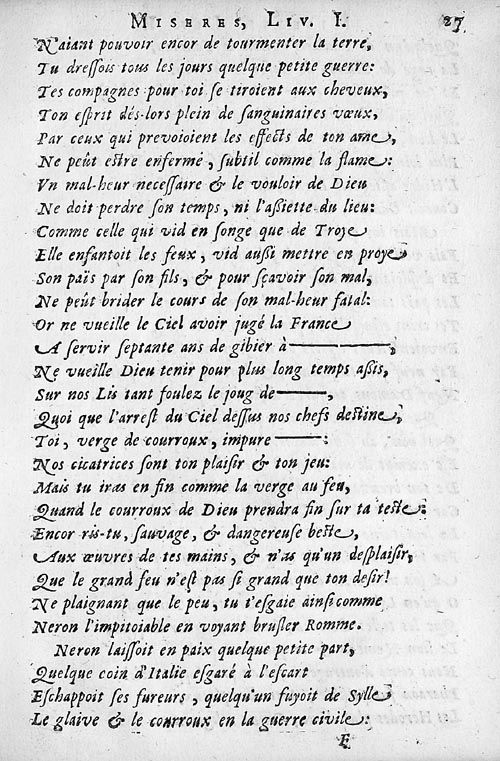 MISERES, LIV. I. 27
N'aiant pouvoir encor de tourmenter la terre,
Tu dreſſois tous les jours quelque petite guerre:
Tes compagnes pour toi ſe tiroient aux cheveux,
Ton eſprit dés-lors plein de ſanguinaires vœux,
Par ceux qui prevoioient les effects de ton ame,
Ne peût eſtre enfermé, ſubtil comme la flame:
Vn mal-heur neceſſaire & le vouloir de Dieu
Ne doit perdre ſon temps, ni l'aßiette du lieu:
Comme celle qui vid en ſonge que de Troye
Elle enfantoit les feux, vid außi mettre en proye
Son païs par ſon fils, & pour ſçavoir ſon mal,
Ne peût brider le cours de ſon mal-heur fatal:
Or ne vueille le Ciel avoir jugé la France
A ſervir ſeptante ans de gibier à ———,
Ne vueille Dieu tenir pour plus long temps aßis,
Sur nos Lis tant foulez le joug de ———,
Quoi que l'arreſt du Ciel deſſus nos chefs deſtine,
Toi, verge de courroux, impure ———:
Nos cicatrices ſont ton plaiſir & ton jeu:
Mais tu iras en fin comme la verge au feu,
Quand le courroux de Dieu prendra fin ſur ta teſte:
Encor ris-tu, ſauvage, & dangereuſe beſte,
Aux œuvres de tes mains, & n'as qu'un deſplaiſir,
Que le grand feu n'eſt pas ſi grand que ton deſir!
Ne plaignant que le peu, tu t'eſgaie ainſi comme
Neron l'impitoiable en voyant bruſler Romme.
Neron laiſſoit en paix quelque petite part,
Quelque coin d'Italie eſgaré à l'eſcart
Eſchappoit ſes fureurs, quelqu'un fuyoit de Sylle
Le glaive & le courroux en la guerre civile:
E